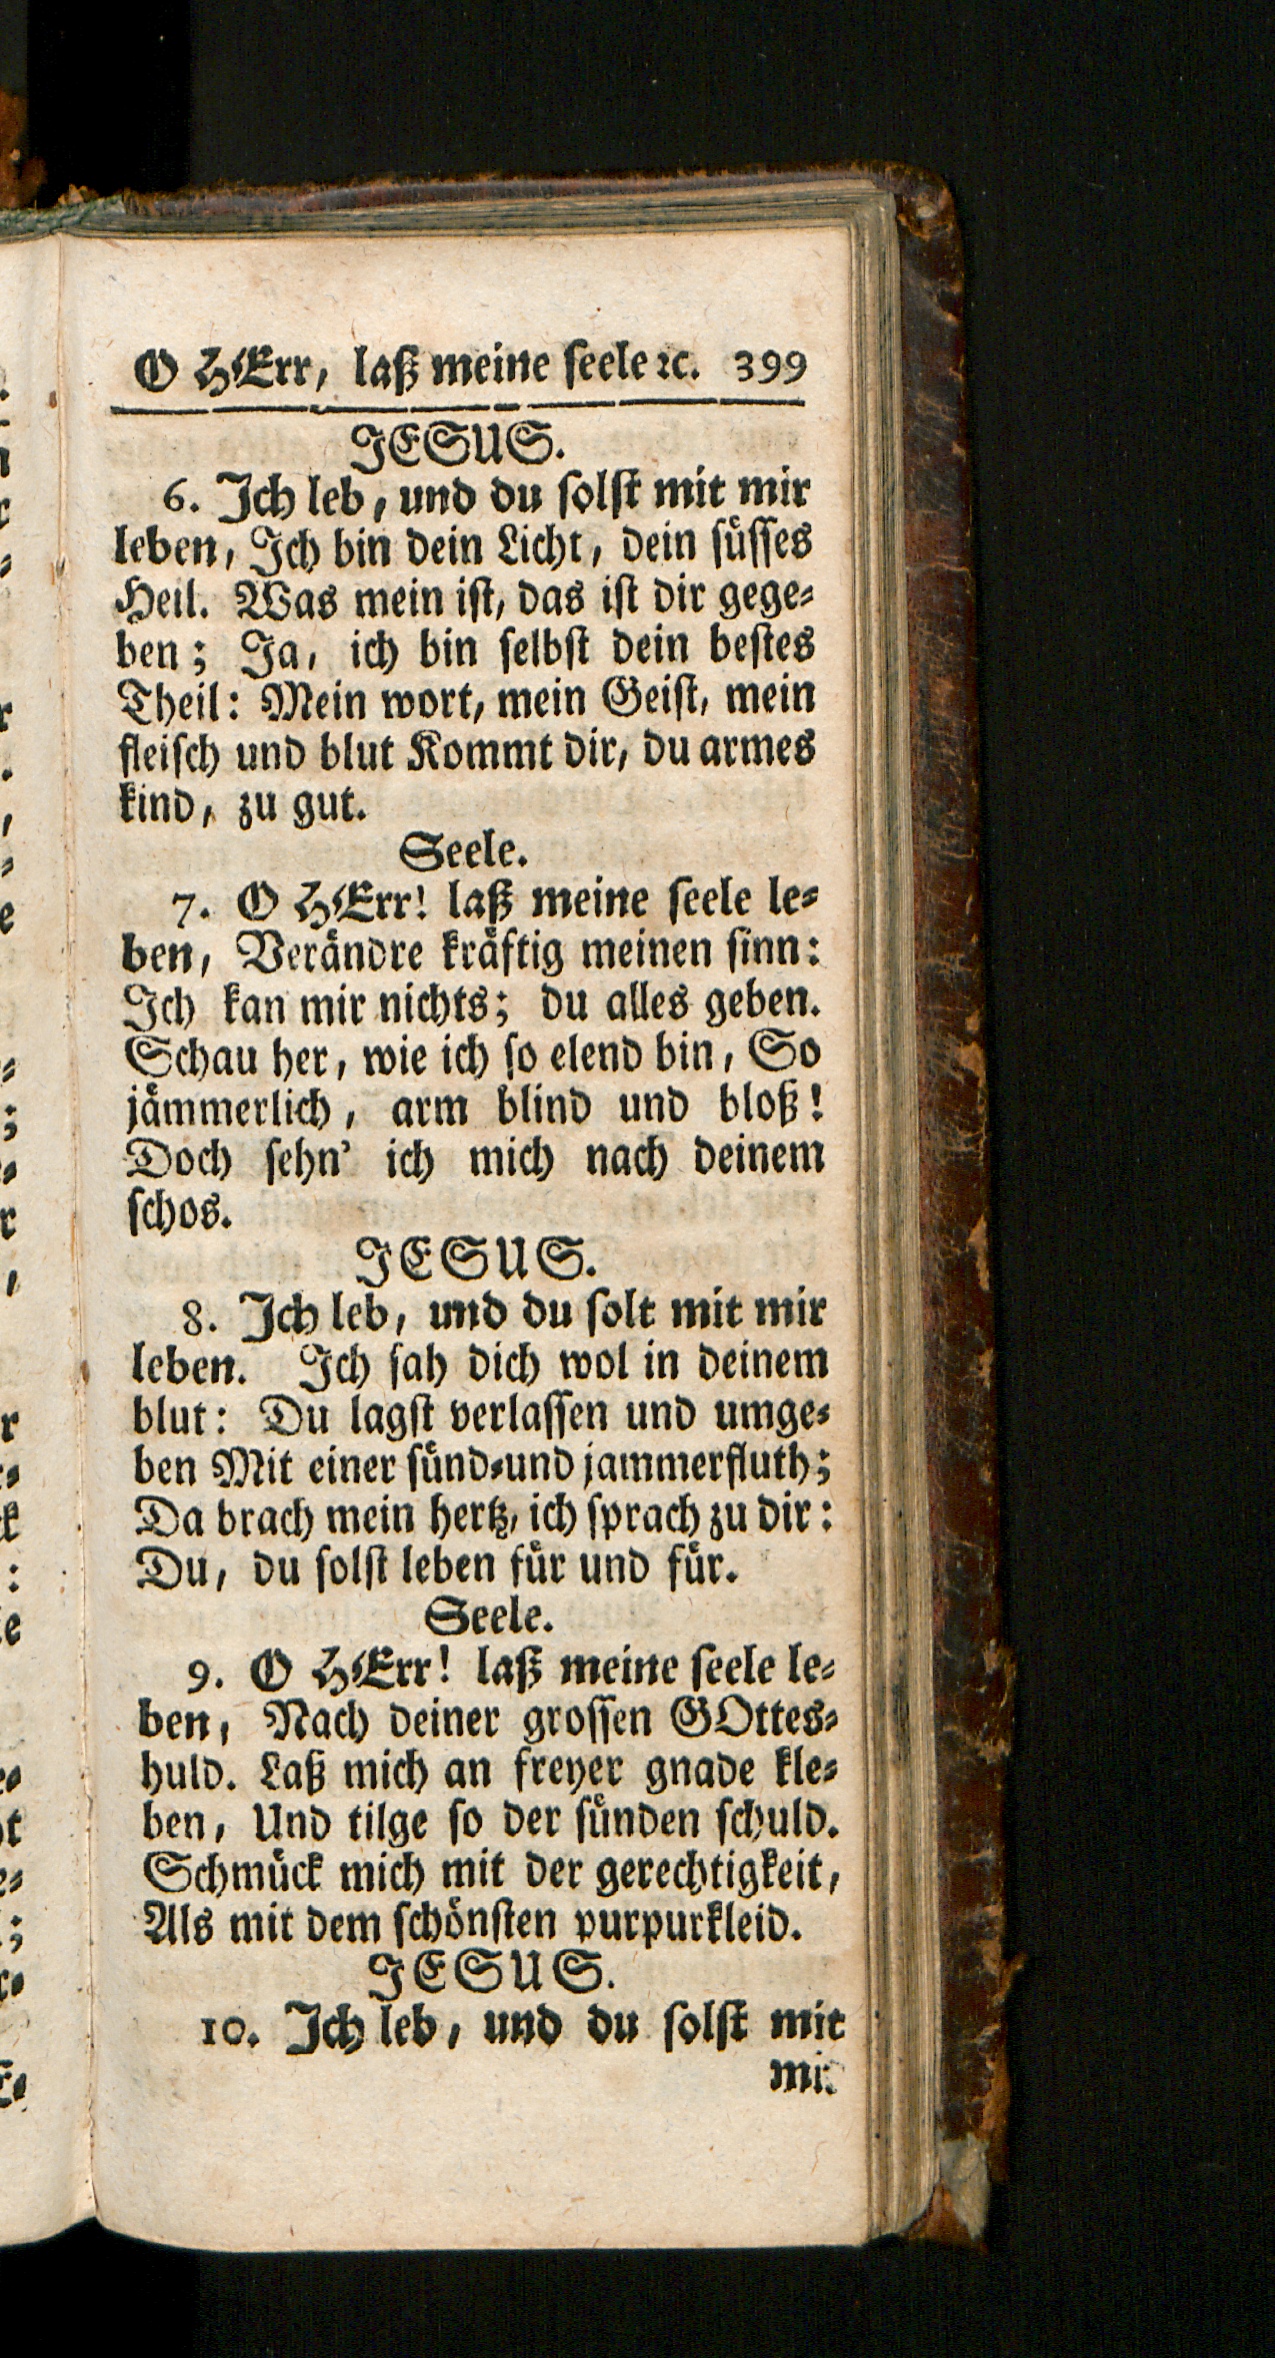 O HErr, laß meine seele ꝛc. 399
JESUS.
6. Ich leb, und du solst mit mir
leben, Ich bin dein Licht, dein süsses
Heil. Was mein ist, das ist dir gege⸗
ben; Ja, ich bin selbst dein bestes
Theil: Mein wort, mein Geist, mein
fleisch und blut Kommt dir, du armes
kind, zu gut.
Seele.
7. O HErr! laß meine seele le⸗
ben, Verändre kräftig meinen sinn:
Ich kan mir nichts; du alles geben.
Schau her, wie ich so elend bin, So
jämmerlich, arm blind und bloß!
Doch sehn' ich mich nach deinem
schos.
JESUS.
8. Ich leb, und du solt mit mir
leben. Ich sah dich wol in deinem
blut: Du lagst verlassen und umge⸗
ben Mit einer sünd⸗und jammerfluth;
Da brach mein hertz, ich sprach zu dir:
Du, du solst leben für und für.
Seele.
9. O HErr! laß meine seele le⸗
ben, Nach deiner grossen GOttes⸗
huld. Laß mich an freyer gnade kle⸗
ben, Und tilge so der sünden schuld.
Schmück mich mit der gerechtigkeit,
Als mit dem schönsten purpurkleid.
JESUS.
10. Ich leb, und du solst mit
mir